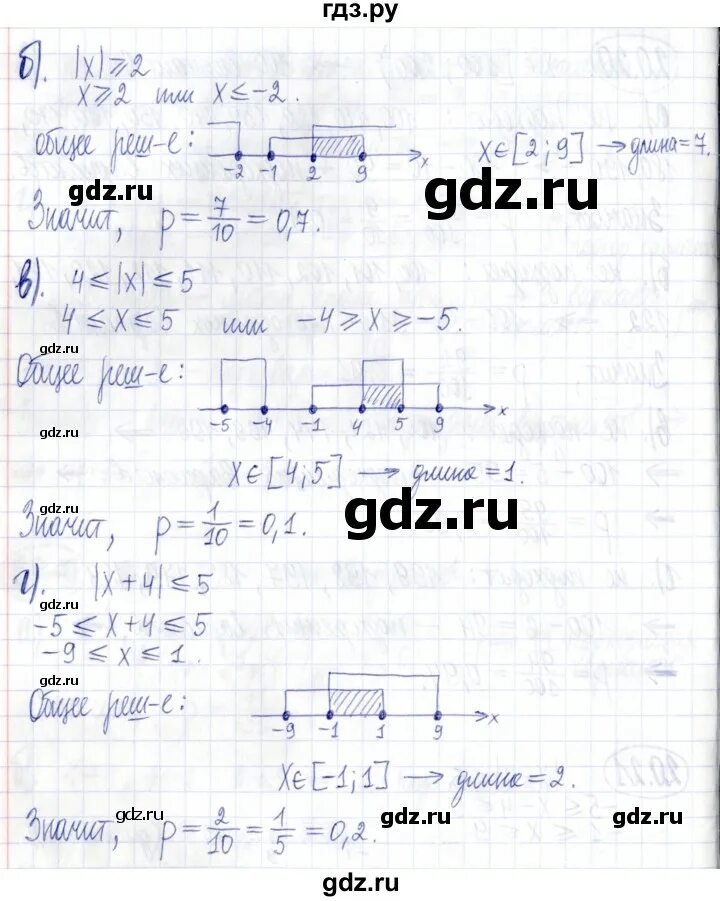 гдз.ру
б). |x| ⩾ 2
x ⩾ 2 или x ≤ -2.
общее реш-е: -2 -1 2 9 x x∈[2;9] → длина=7.
gdz.ru
gdz.ru
Значит, p = 7/10 = 0,7.
gdz.ru
в). 4 ≤ |x| ≤ 5
4 ≤ x ≤ 5 или -4 ⩾ x ⩾ -5.
gdz.ru
gdz.ru
Общее реш-е:
-5 -4 -1 4 5 9 x
gdz.ru
x∈[4;5] → длина=1.
gdz.ru
Значит, p = 1/10 = 0,1.
г). |x+4| ≤ 5
gdz.ru
-5 ≤ x+4 ≤ 5
-9 ≤ x ≤ 1.
gdz.ru
gdz.ru
Общее реш-е:
-9 -1 1 9 x
x∈[-1;1] → длина=2.
gdz.ru
gdz.ru
Значит, p = 2/10 = 1/5 = 0,2.
gdz.ru